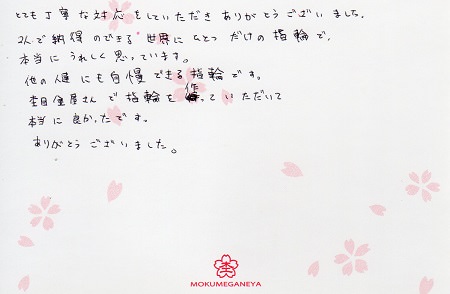 とても丁寧な対応をしていただきありがとうございました。
2人で納得のできる世界にひとつだけの指輪で、
本当にうれしく思っています。
他の人達にも自慢できる指輪です。
杢目金屋さんで指輪を作っていただいて
本当に良かったです。
ありがとうございました。
MOKUMEGANEYA